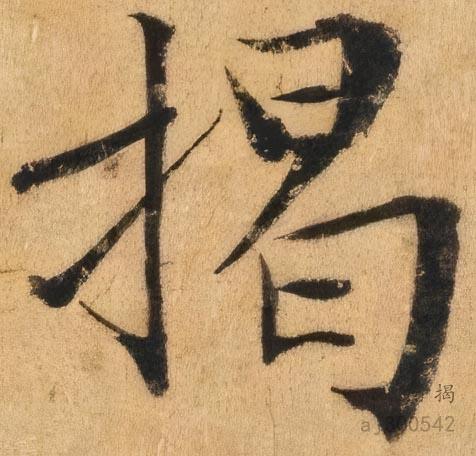 揭
揭
aj300542